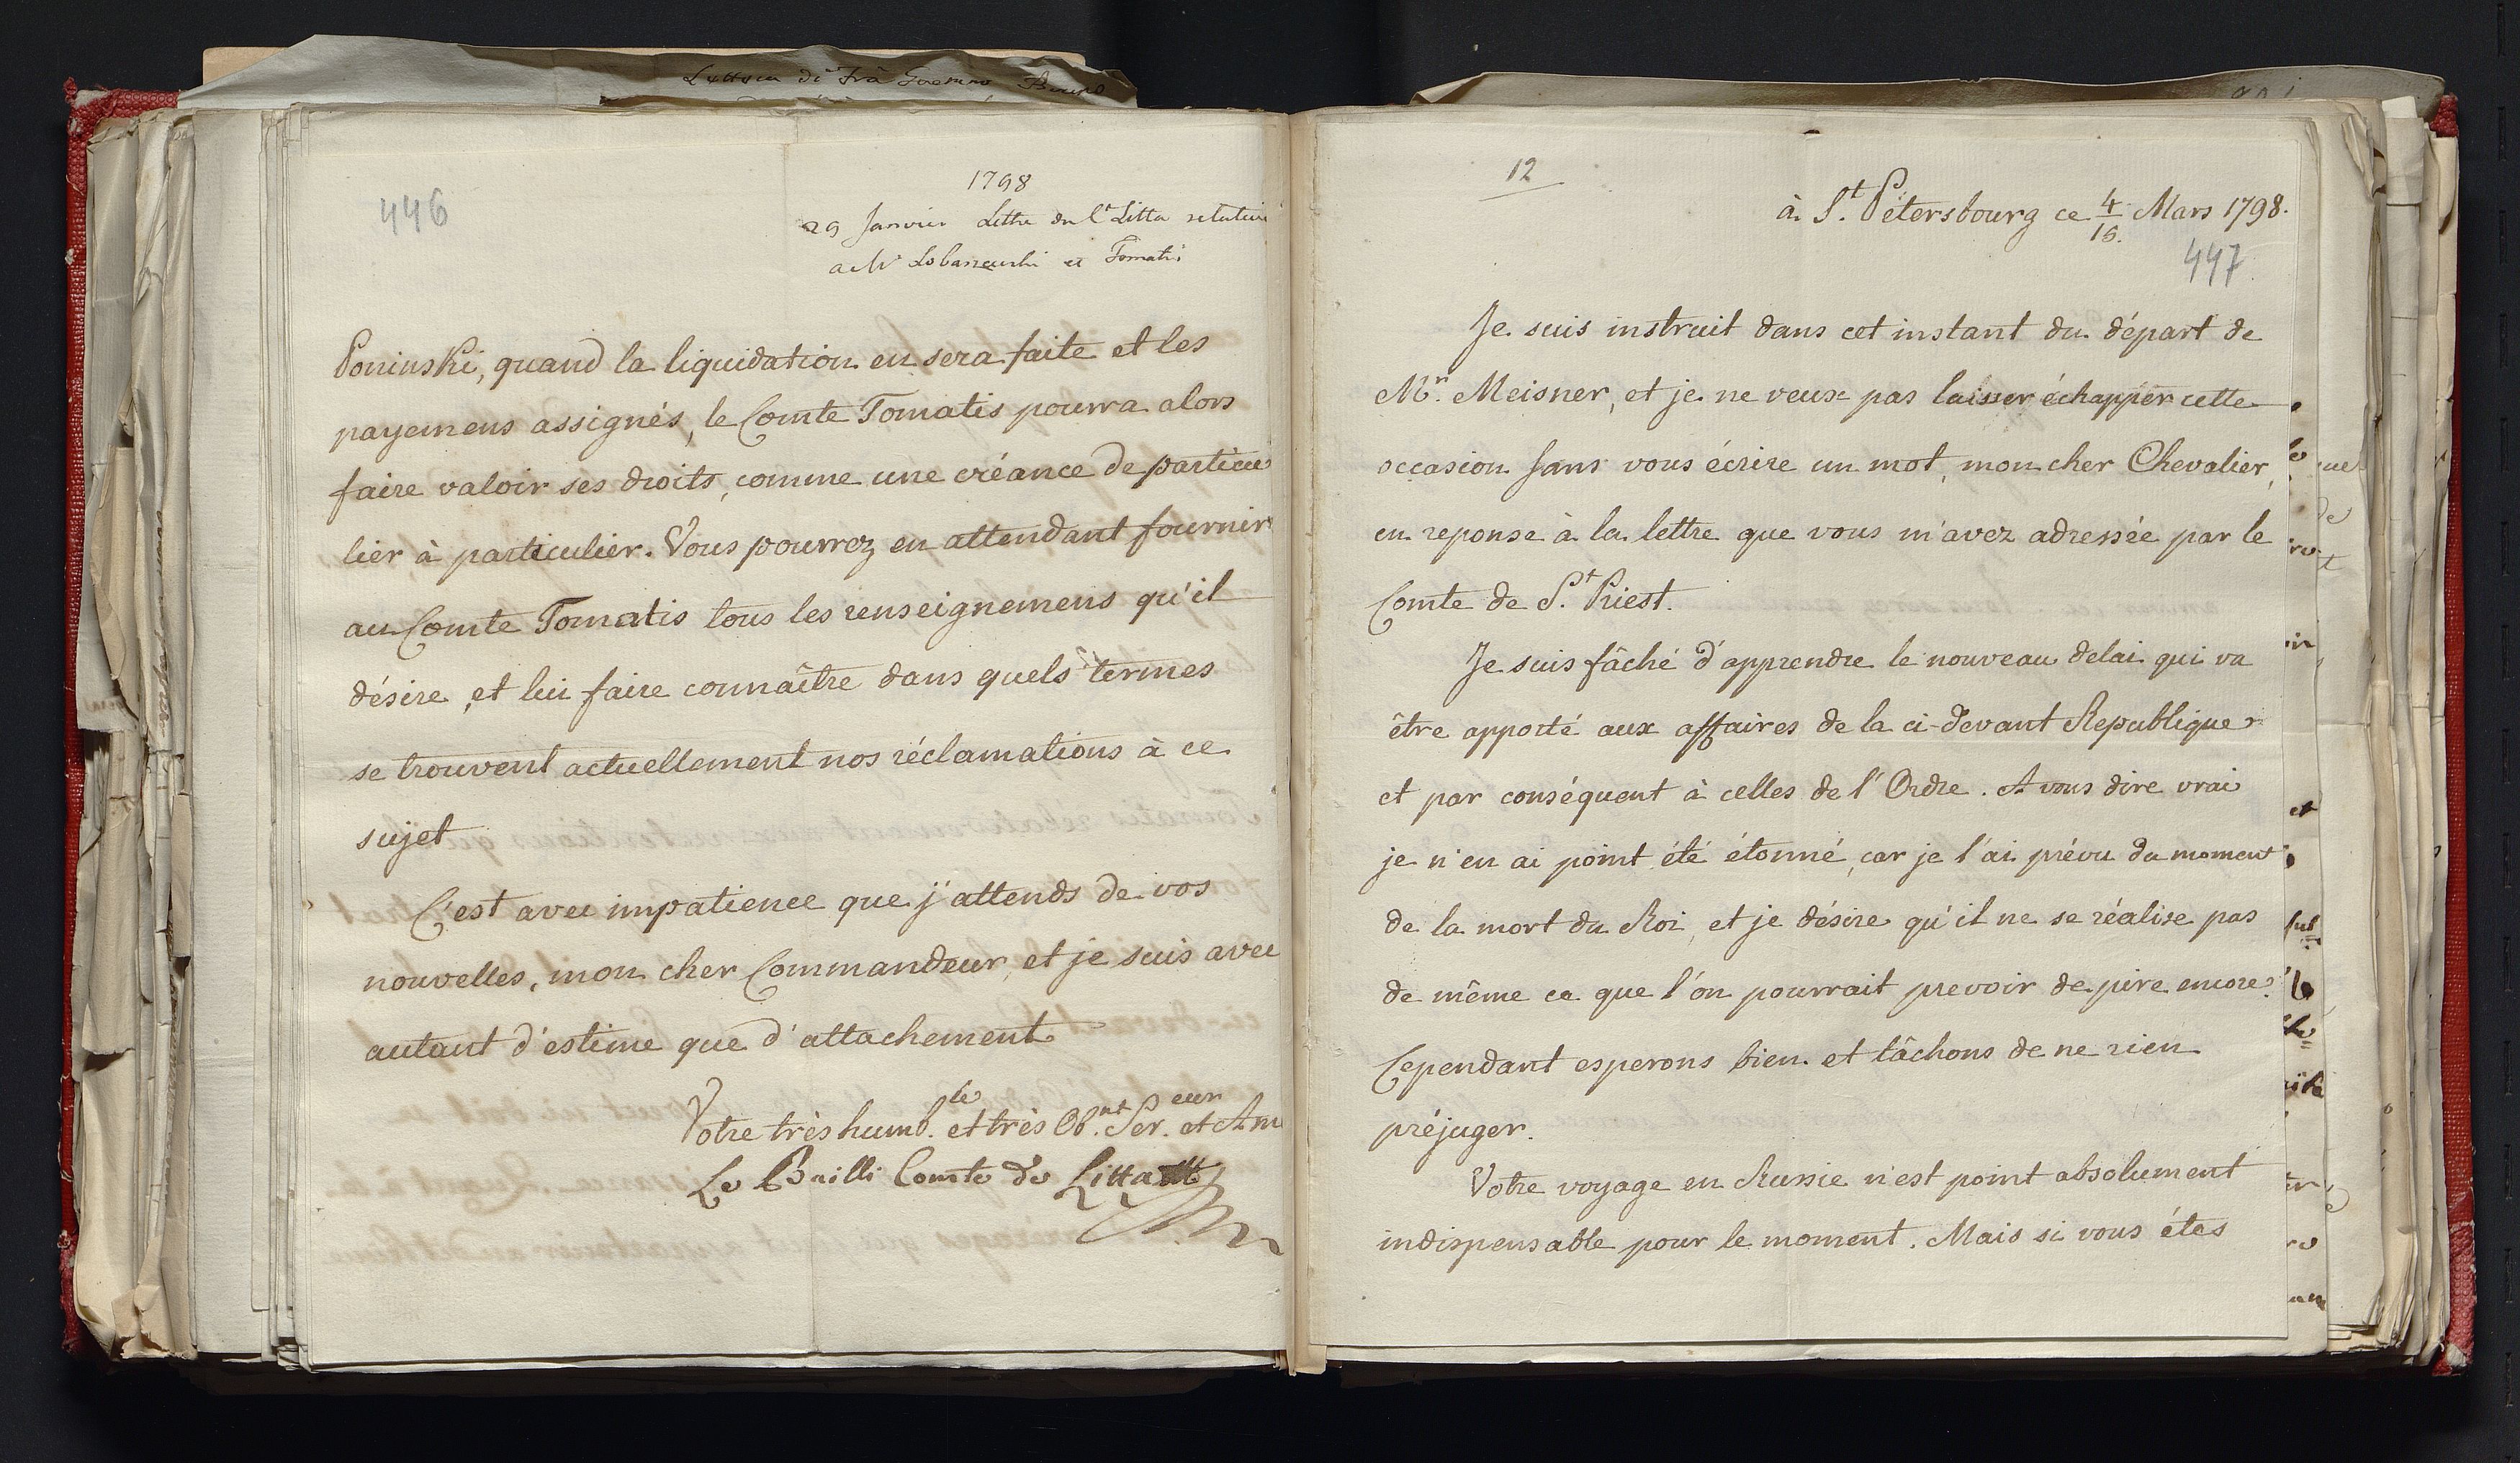 446
1798
29 Janvier Lettre du Ct Litta relative
a Mr Lobarzewski et Tomatis
Poninski, quand la liquidation en sera faite et les
payemens assignés, le Comte Tomatis pourra alors
faire valoir ses droits, comme une créance de particu
lier à particulier. Vous pourrez en attendant fournir
au Comte Tomatis tous les renseignemens qu'il
désire, et lui faire connaître dans quels termes
se trouvent actuellement nos réclamations à ce
sujet
C'est avec impatience que j'attends de vos
nouvelles, mon cher Commandeur, et je suis avec
autant d'estime que d'attachement
Votre très humb.le et très Ob.nt Ser.eur et Am
Le Bailli Comte de Litta
12
à St. Pétersbourg ce 4/15. Mars 1798.
447
Je suis instruit dans cet instant du départ de
Mr. Meisner, et je ne veux pas laisser échapper cette
occasion sans vous écrire un mot, mon cher Chevalier,
en reponse à la lettre que vous m'avez adressée par le
Comte de St. Priest.
Je suis fâché d'apprendre le nouveau delai qui va
être apporté aux affaires de la ci-devant Republique
et par conséquent à celles de l'Ordre. A vous dire vrai
je n'en ai point été étonné, car je l'ai prévu du moment
de la mort du Roi, et je désire qu'il ne se réalise pas
de même ce que l'on pourrait prevoir de pire encore.
Cependant esperons bien et tâchons de ne rien
préjuger.
Votre voyage en Russie n'est point absolument
indispensable pour le moment. Mais si vous étes